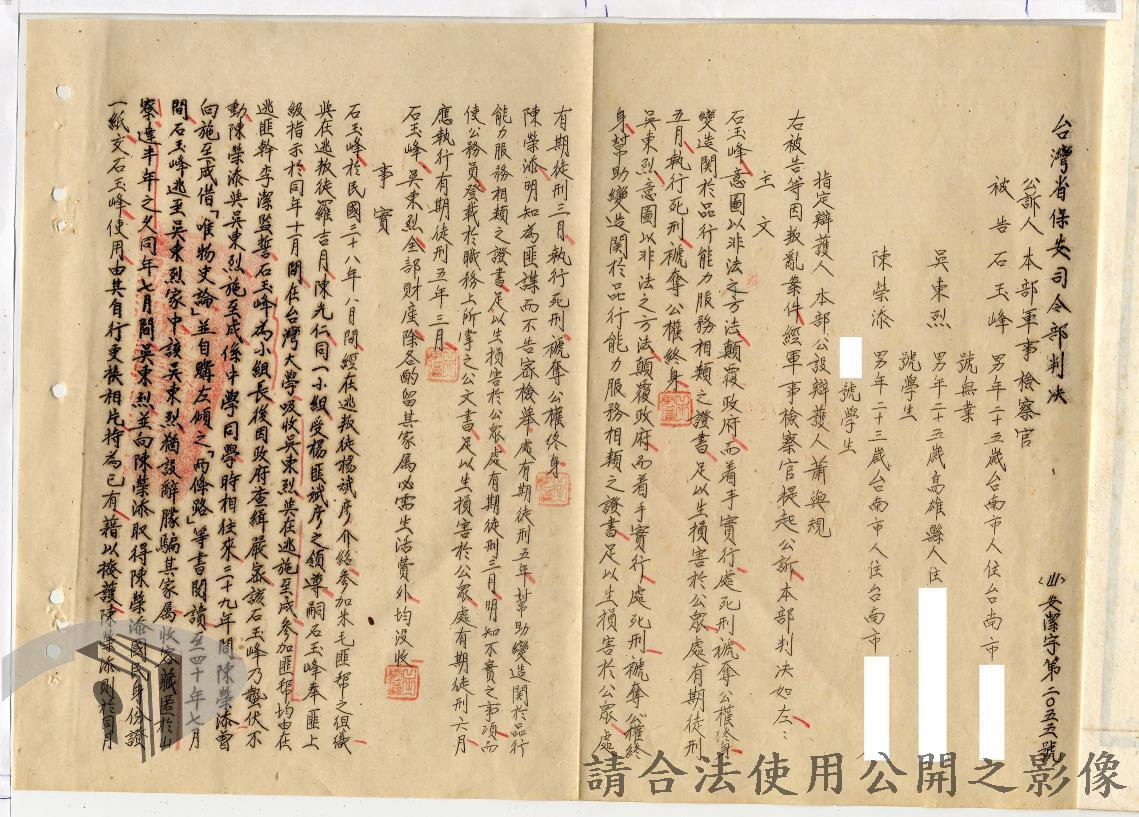 台灣省保安司令部判決
(41)安潔字第二〇五五號
公訴人 本部軍事檢察官
被告 石玉峰 男年二十五歲台南市人住台南市
號無業
吳東烈 男年二十五歲高雄縣人住
號學生
陳榮添 男年二十三歲台南市人住台南市
號學生
指定辯護人 本部公設辯護人蕭與規
右被告等因叛亂案件經軍事檢察官提起公訴本部判決如左：
主文
石玉峰意圖以非法之方法顛覆政府而着手實行處死刑褫奪公權終身
變造關於品行能力服務相類之證書足以生損害於公眾處有期徒刑
五月執行死刑褫奪公權終身
吳東烈意圖以非法之方法顛覆政府而着手實行處死刑褫奪公權終
身幫助變造關於品行能力服務相類之證書足以生損害於公眾處
有期徒刑三月執行死刑褫奪公權終身
陳榮添明知為匪諜而不告密檢舉處有期徒刑五年幫助變造關於品行
能力服務相類之證書足以生損害於公眾處有期徒刑三月明知不實之事項而
使公務員登載於職務上所掌之公文書足以生損害於公眾處有期徒刑六月
應執行有期徒刑五年三月
石玉峰吳東烈全部財產除各酌留其家屬必需生活費外均沒收
事實
石玉峰於民國三十八年八月間經在逃叛徒楊斌彥介紹參加朱毛匪幫之組織
與在逃叛徒羅吉月陳光仁同一小組受楊匪斌彥之領導嗣石玉峰奉匪上
級指示於同年十一月間在台灣大學吸收吳東烈與在逃施至成參加匪幫均由在
逃匪幹李潔監誓石玉峰為小組長後因政府查緝嚴密該石玉峰乃蟄伏不
動陳榮添與吳東烈施至成係中學同學時相往來二十九年間陳榮添曾
向施至成借「唯物史論」並自購左傾之「兩條路」等書閱讀至四十年七月
間石玉峰逃至吳東烈家中該吳東烈猶設辭朦騙其家屬收容藏匿於山
寮達半年之久同年七月間吳東烈並向陳榮添取得陳榮添國民身份證
一紙交石玉峰使用由其自行更換相片持為已有藉以掩護陳榮添則於同月
請合法使用公開之影像